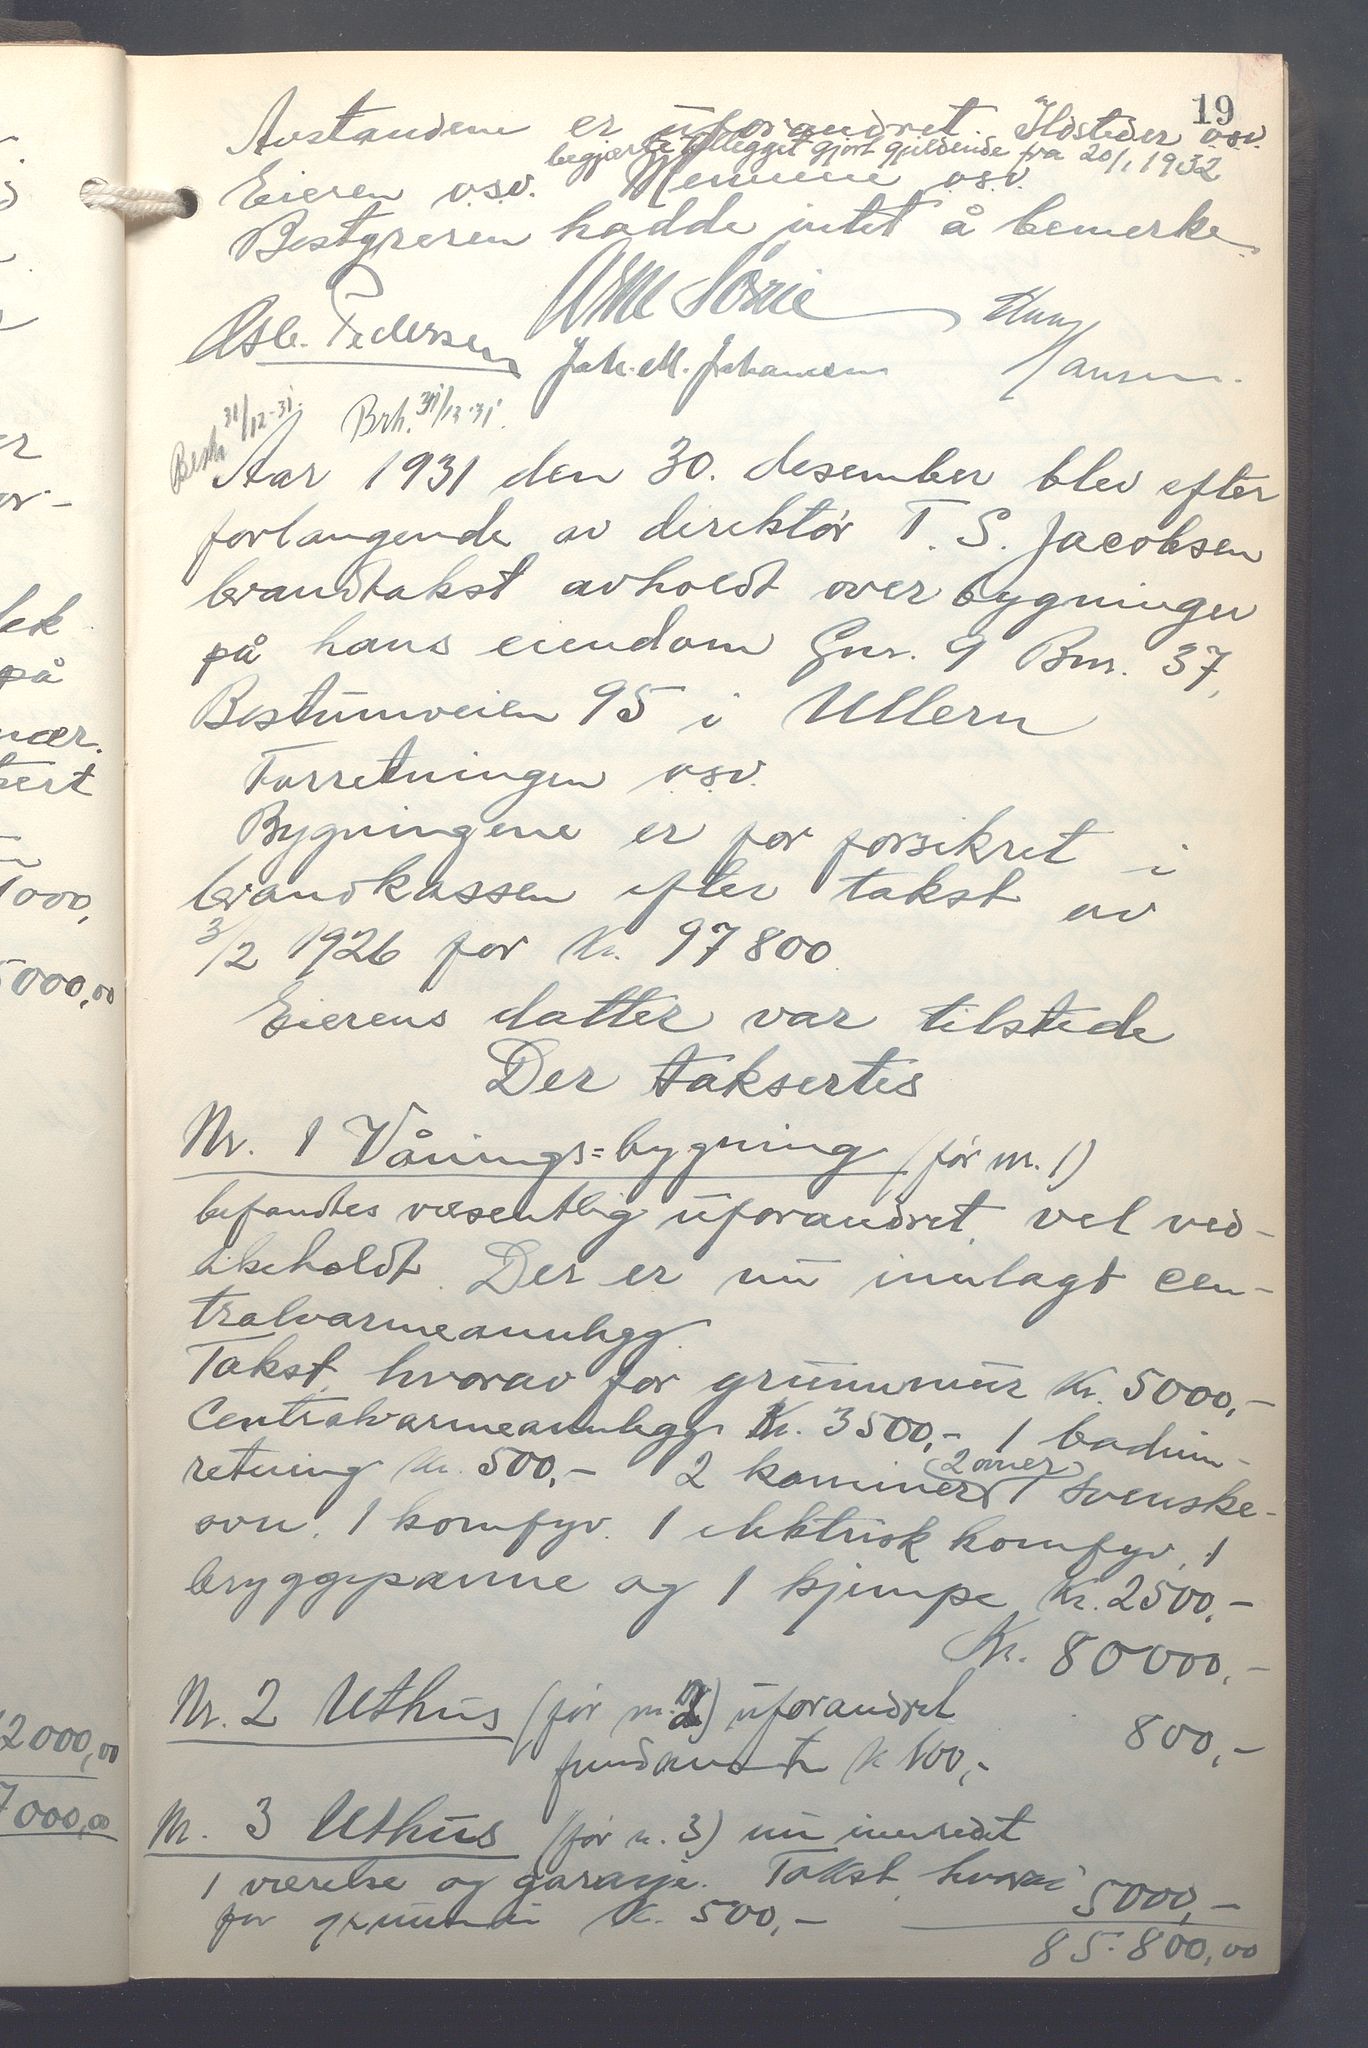 19
Avstandene er uforandret. Ildsteder osv.
begjærte tillegget gjort gjeldende fra 20/1 1932
Eieren osv. Hemmene osv.
Bestyreren hadde intet å bemerke.
Osc. Pedersen Joh. M. Johansen Hans Hansen.
Besk. 31/12-31. Brh. 31/12-31.
Aar 1931 den 30. desember blev efter
forlangende av direktør T. S. Jacobsen
brandtakst avholdt over bygninger
på hans eiendom Gnr. 9 Bnr. 37,
Bestumveien 95 i Ullern
Forretningen osv.
Bygningene er før forsikret i
brandkassen efter takst av
3/2 1926 for Kr. 97800.
Eierens datter var tilstede
Der taksertes
Nr. 1 Vånings=bygning (før nr. 1)
befandtes væsentlig uforandret, vel ved-
likeholdt. Der er nu innlagt cen-
tralvarmeannlegg.
Takst, hvorav for grunnmur Kr. 5000,-
Centralvarmeannlegg Kr. 3500,- 1 badinn-
retning Kr. 500,- 2 kaminer, 2 ovner 1 svenske-
ovn, 1 komfyr. 1 elektrisk komfyr, 1
bryggepanne og 1 kjempe Kr. 2500,-
Kr. 80000,-
Nr. 2 Uthus (før nr. 2) uforandret
fundament Kr 100,- 800,-
Nr. 3 Uthus (før nr. 3) nu innredet
1 værelse og garasje. Takst, hvorav
for grunnmur Kr. 500,- 5000,-
85.800,00
lek
på
nær.
1000,
5000,00
2000,00
7000,00